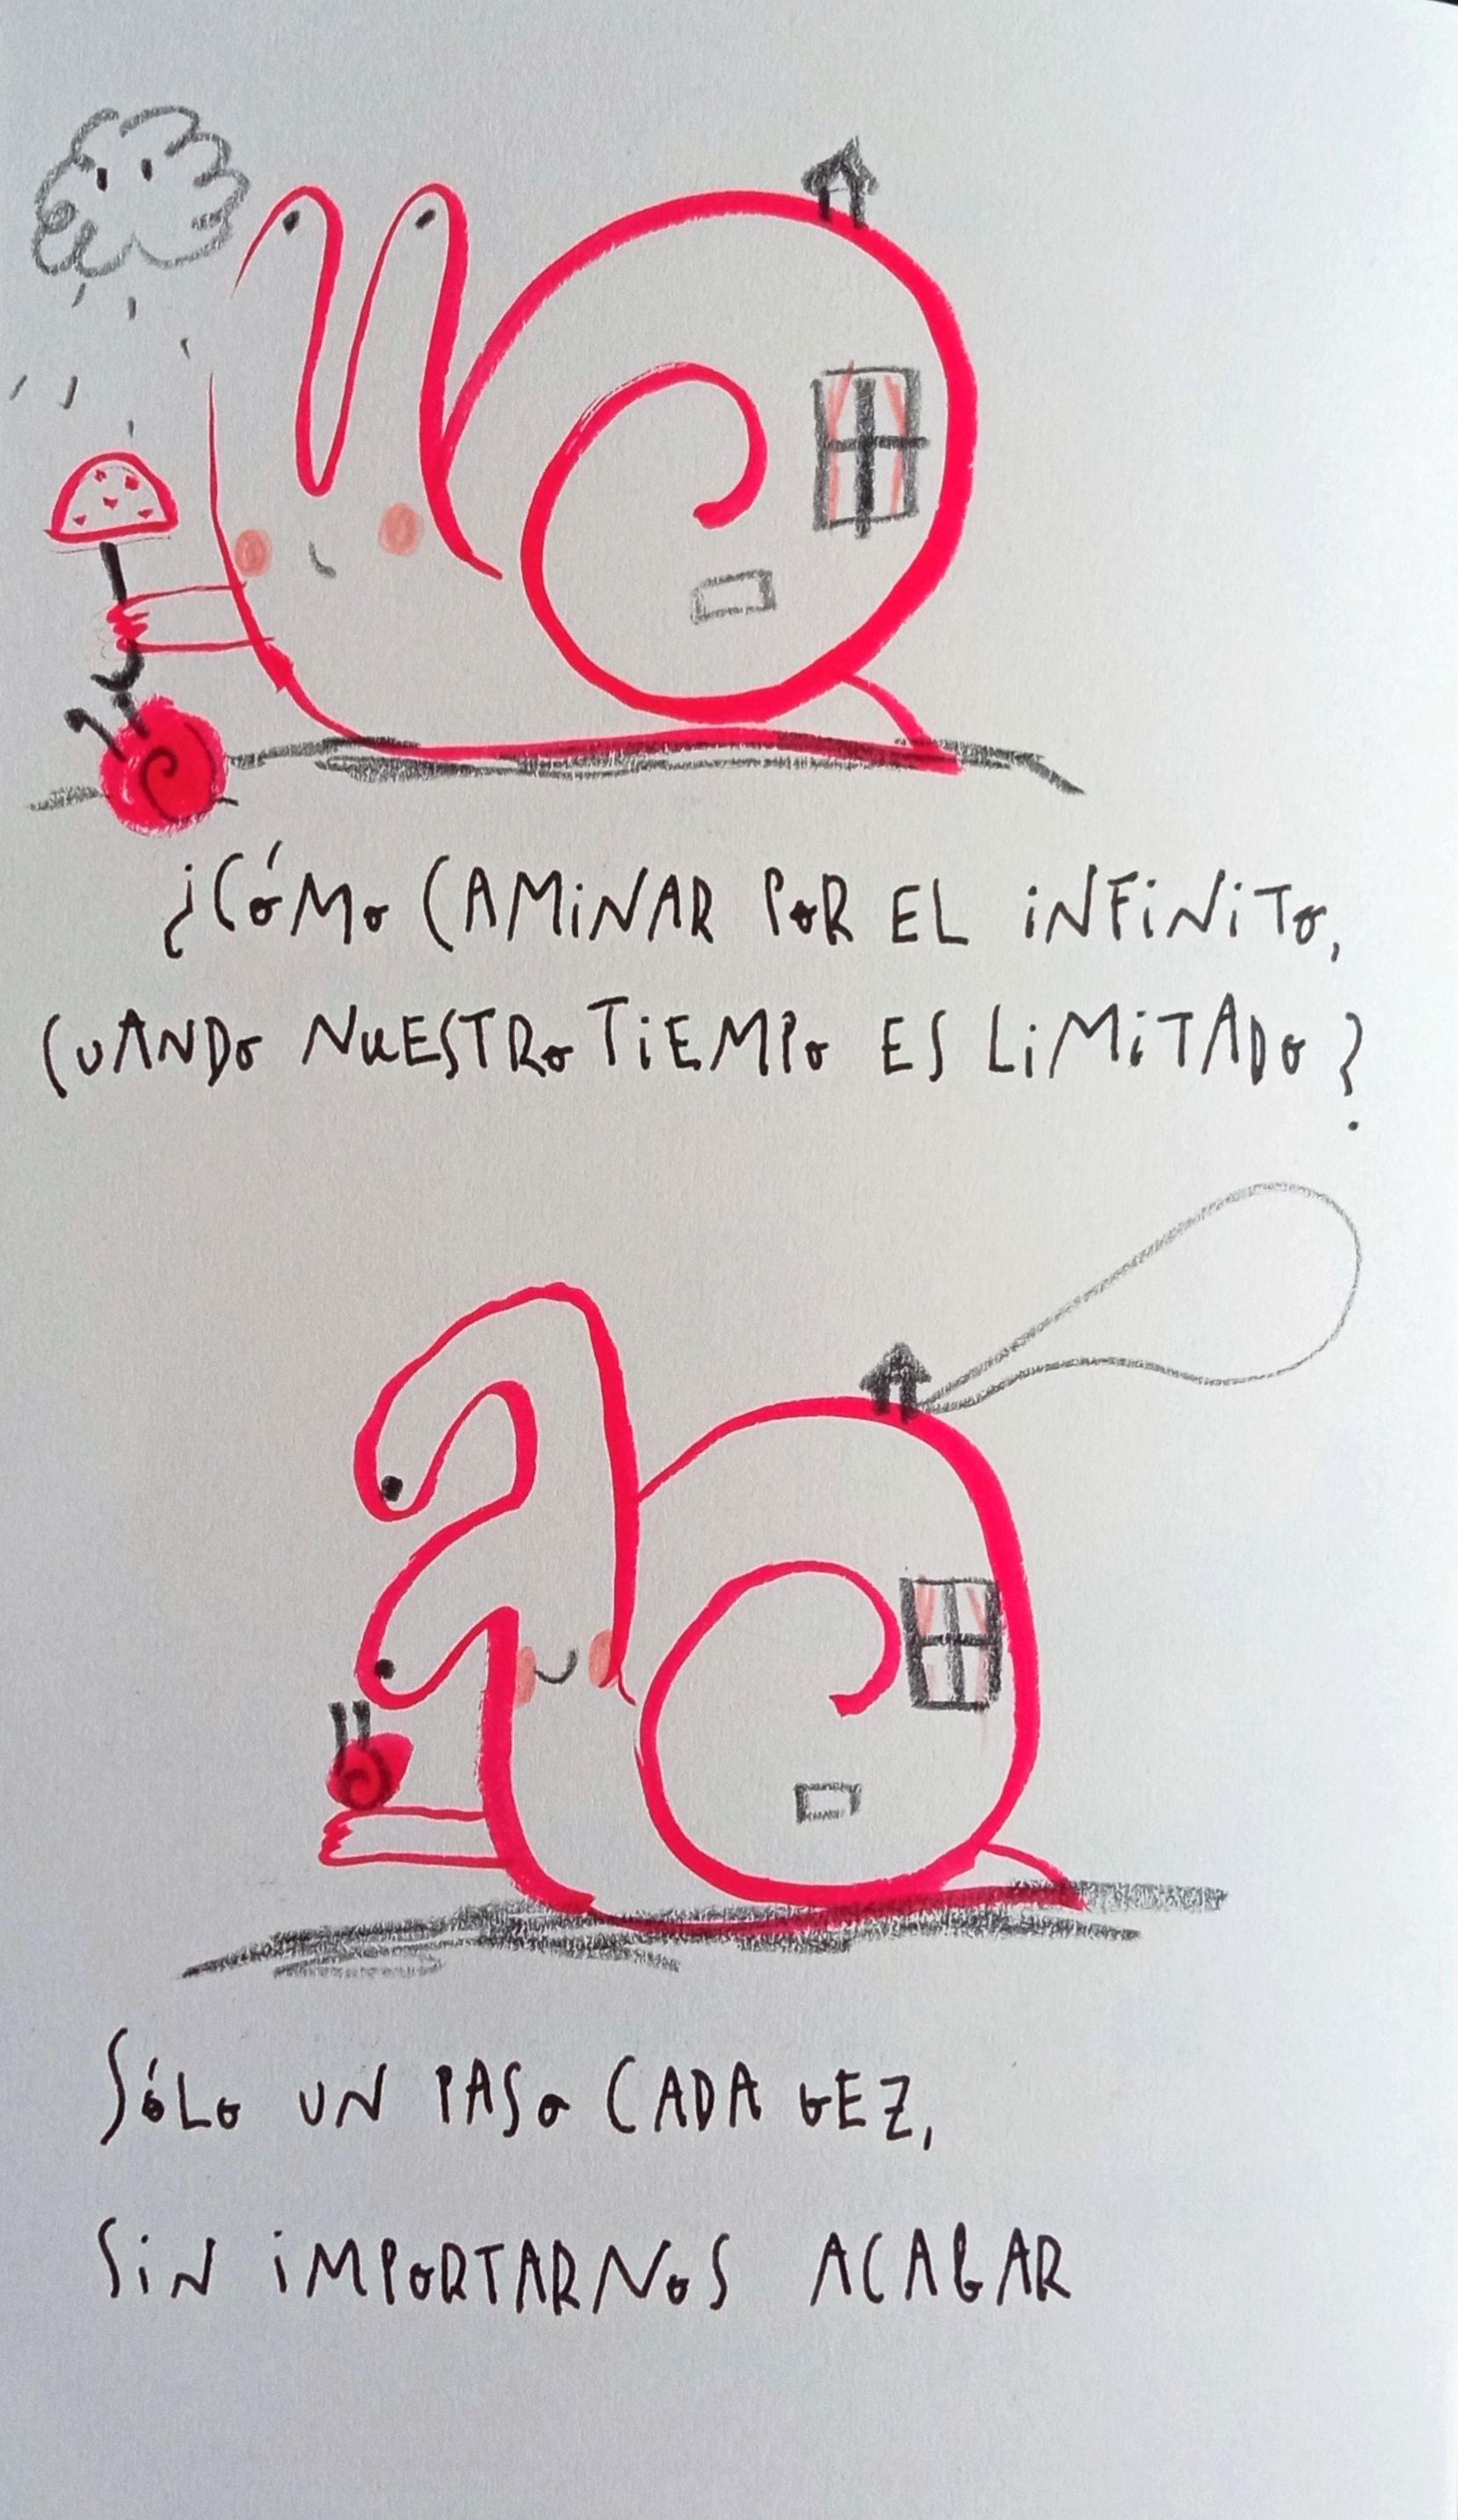 ¿CÓMO CAMINAR POR EL INFINITO,
CUANDO NUESTRO TIEMPO ES LIMITADO?
SÓLO UN PASO CADA VEZ,
SIN IMPORTARNOS ACABAR